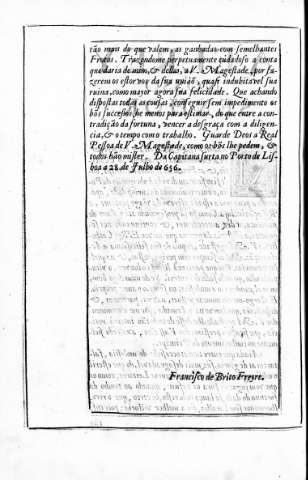 tão mais do que valem, as ganhadas com semelhantes
Frotas. Trazendome perpetuamente cuidadoso a conta
que daria de mim, & dellas, a V. Magestade, por fa-
zerem os estorvos da sua união, quasi indubitavel sua
ruina, como mayor agora sua felicidade. Que achando
dispostas todas as cousas, conseguir sem impedimento os
bõs successos, he menos para estimar, do que entre a con-
tradição da fortuna, vencer a desgraça com a diligen-
cia, & o tempo com o trabalho. Guarde Deos a Real
Pessoa de V. Magestade, como os bõs lhe pedem, &
todos hão mister. Da Capitana surta no Porto de Lis-
boa a 28. de Julho de 656.
Francisco de Brito Freyre.